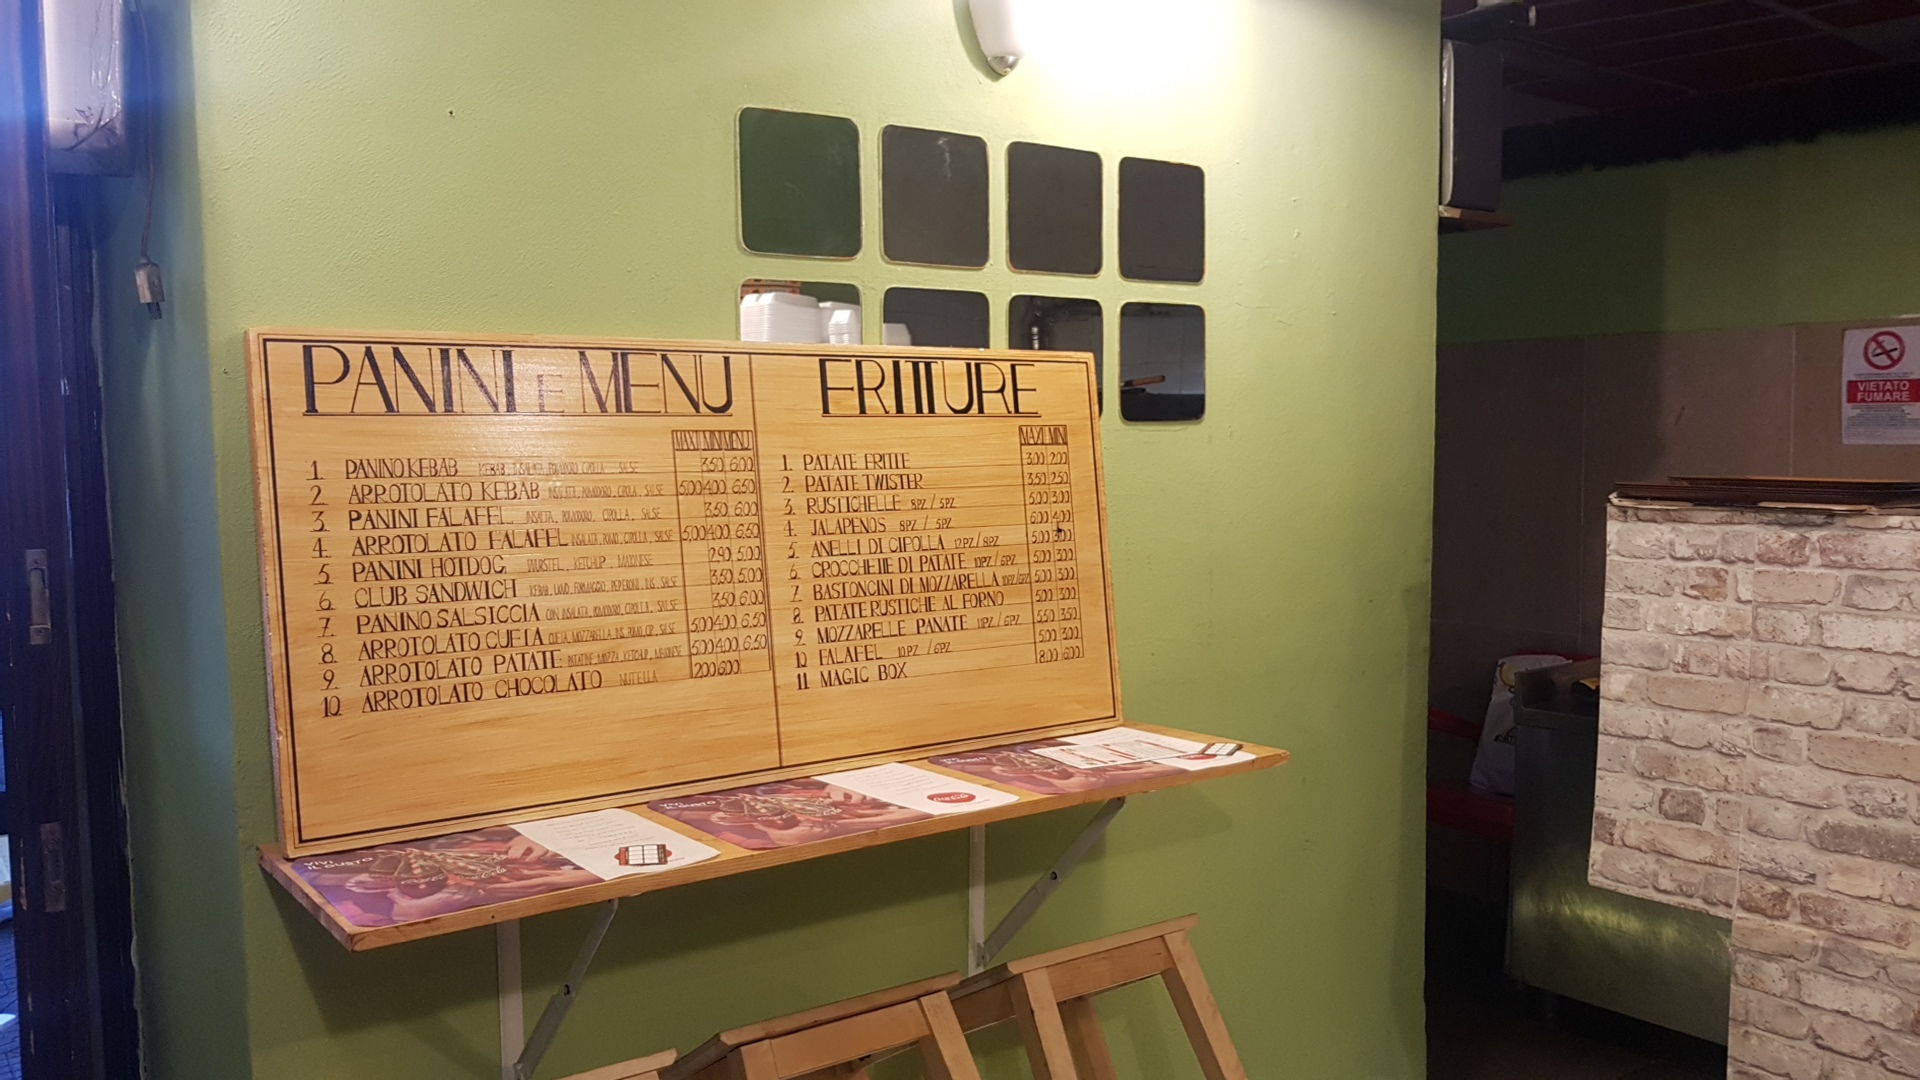 PANINI E MENU
MAXI MINI MENU
1. PANINO KEBAB KEBAB, INSALATA, POMODORO, CIPOLLA SALSE 3,50 6,00
2. ARROTOLATO KEBAB INSALATA, POMODORO, CIPOLLA, SALSE 5,00 4,00 6,50
3. PANINI FALAFEL INSALATA, POMODORO, CIPOLLA, SALSE 3,50 6,00
4. ARROTOLATO FALAFEL INSALATA, POMO, CIPOLLA, SALSE 5,00 4,00 6,50
5 PANINI HOTDOG WURSTEL, KETCHUP, MAIONESE 2,90 5,00
6 CLUB SANDWICH FORMAGGIO, PEPERONI, INS, SALSE 3,50 5,00
7. PANINO SALSICCIA CON INSALATA, POMODORO, CIPOLLA, SALSE 3,50 6,00
8. ARROTOLATO CUETA MOZZARELLA, INS, POMO, CIP., SALSE 5,00 4,00 6,50
9. ARROTOLATO PATATE: PATATINE, MOZZA, KETCHUP, MAIONESE 5,00 4,00 6,50
10. ARROTOLATO CHOCOLATO NUTELLA 2,00 6,00
FRITTURE
MAXI MINI
1. PATATE FRITTE 3,00 2,00
2. PATATE TWISTER 3,50 2,50
3. RUSTICHELLE 8PZ / 5PZ 5,00 3,00
4. JALAPENOS 8PZ / 5PZ 6,00 4,00
5. ANELLI DI CIPOLLA 12PZ / 8PZ 5,00 3,00
6. CROCCHETTE DI PATATE 10PZ / 6PZ 5,00 3,00
7. BASTONCINI DI MOZZARELLA 10PZ/6PZ 5,00 3,00
8. PATATE RUSTICHE AL FORNO 5,00 3,00
9. MOZZARELLE PANATE 11PZ / 6PZ 5,50 3,50
10 FALAFEL 10PZ / 6PZ 5,00 3,00
11 MAGIC BOX 8,00 6,00
VIVI
IL GUSTO
VIVI
IL GUSTO
Coca-Cola
VIETATO
FUMARE